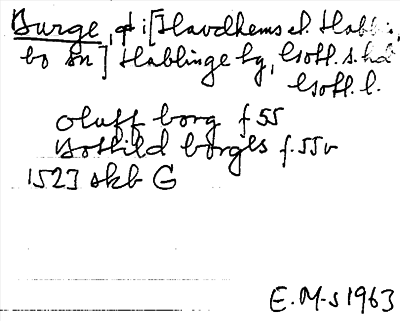 Burge, ¢ i [Havdhems el. Habling
bo sn] Hablinge by, Gotl. s. hd
Gotl. l.
oluff borg f 55
Bothild borges f. 55v
1523 skb G
E. M-s 1963